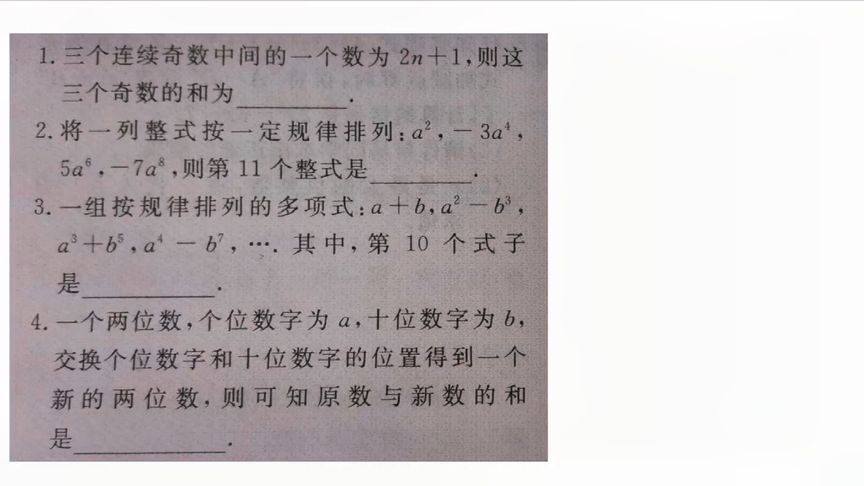 1. 三个连续奇数中间的一个数为 2n+1,则这
三个奇数的和为________.
2. 将一列整式按一定规律排列:a²,－3a⁴,
5a⁶,－7a⁸,则第 11 个整式是________.
3. 一组按规律排列的多项式:a＋b,a²－b³,
a³＋b⁵,a⁴－b⁷,…. 其中,第 10 个式子
是________.
4. 一个两位数,个位数字为 a,十位数字为 b,
交换个位数字和十位数字的位置得到一个
新的两位数,则可知原数与新数的和
是________.